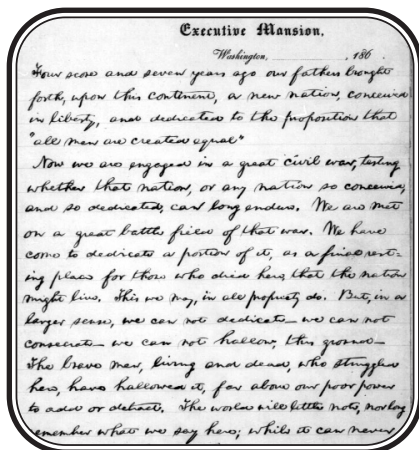 Executive Mansion,
Washington, , 186
Four score and seven years ago our fathers brought
forth, upon this continent, a new nation, conceived
in liberty, and dedicated to the proposition that
"all men are created equal"
Now we are engaged in a great civil war, testing
whether that nation, or any nation so conceived,
and so dedicated, can long endure. We are met
on a great battle field of that war. We have
come to dedicate a portion of it, as a final rest-
ing place for those who died here, that the nation
might live. This we may, in all propriety do. But, in a
larger sense, we can not dedicate — we can not
consecrate — we can not hallow, this ground —
The brave men, living and dead, who struggled
here, have hallowed it, far above our poor power
to add or detract. The world will little note, nor long
remember what we say here; while it can never